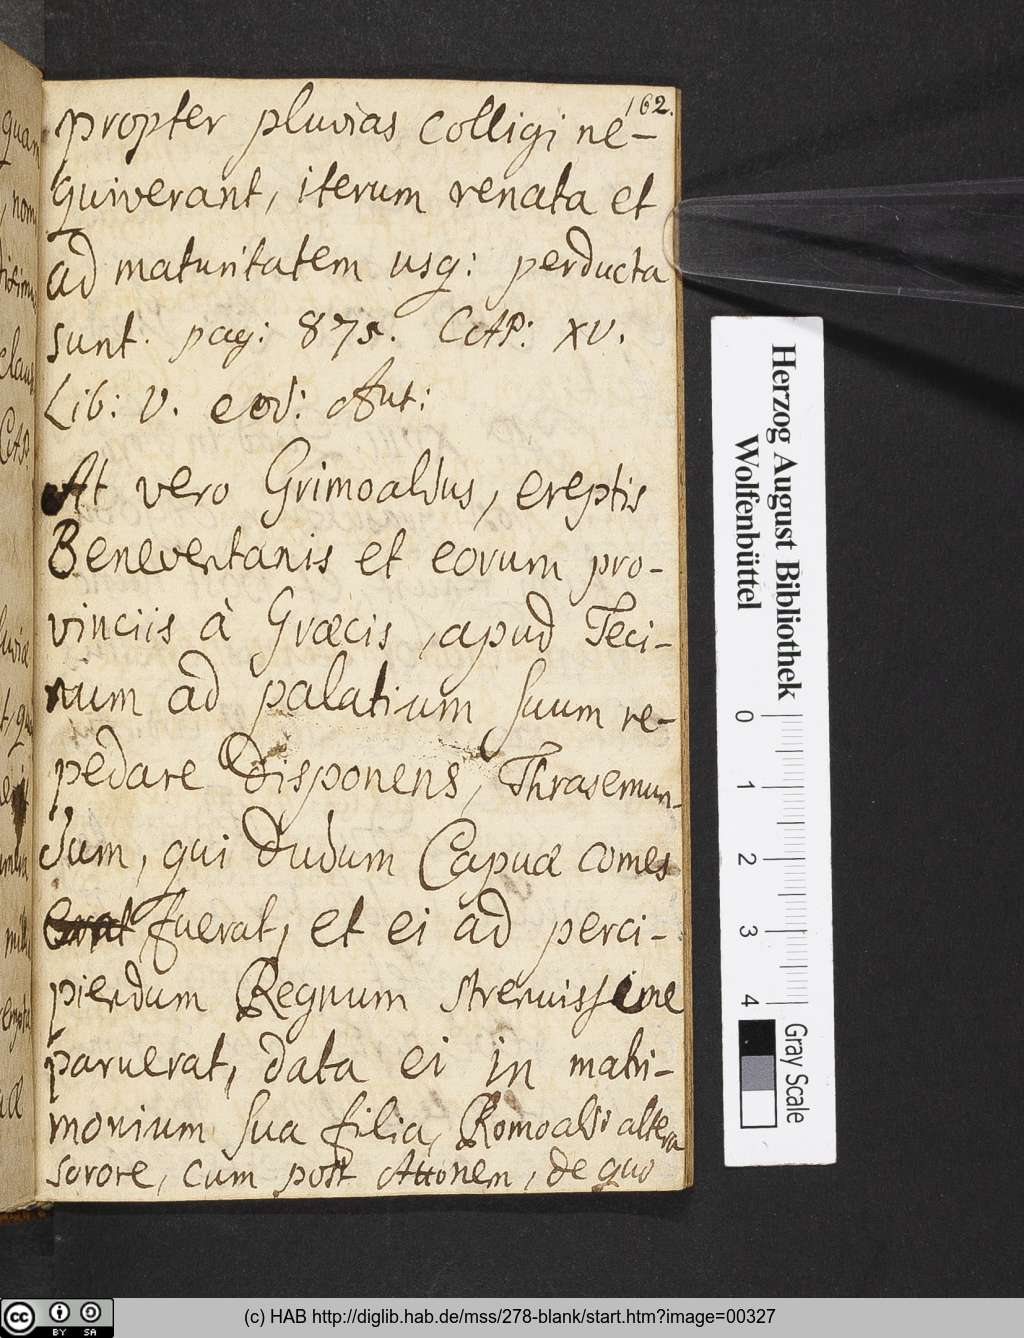 162.
propter pluvias colligi ne-
quiverant, iterum renata et
ad maturitatem usq: perducta
sunt. pag: 875. CAP: XV.
Lib: V. eod: Aut:
At vero Grimoaldus, ereptis
Beneventanis et eorum pro-
vinciis à Græcis, apud Teci-
num ad palatium suum re-
pedare disponens, Thrasemun-
dum, qui dudum Capuæ comes
erat fuerat, et ei ad perci-
piendum Regnum strenuissime
paruerat, data ei in matri-
monium sua filia, Romoaldi altera
sorore, cum post Attonem, de quo
Herzog August Bibliothek
Wolfenbüttel
0 1 2 3 4
Gray Scale
cc BY SA
(c) HAB http://diglib.hab.de/mss/278-blank/start.htm?image=00327